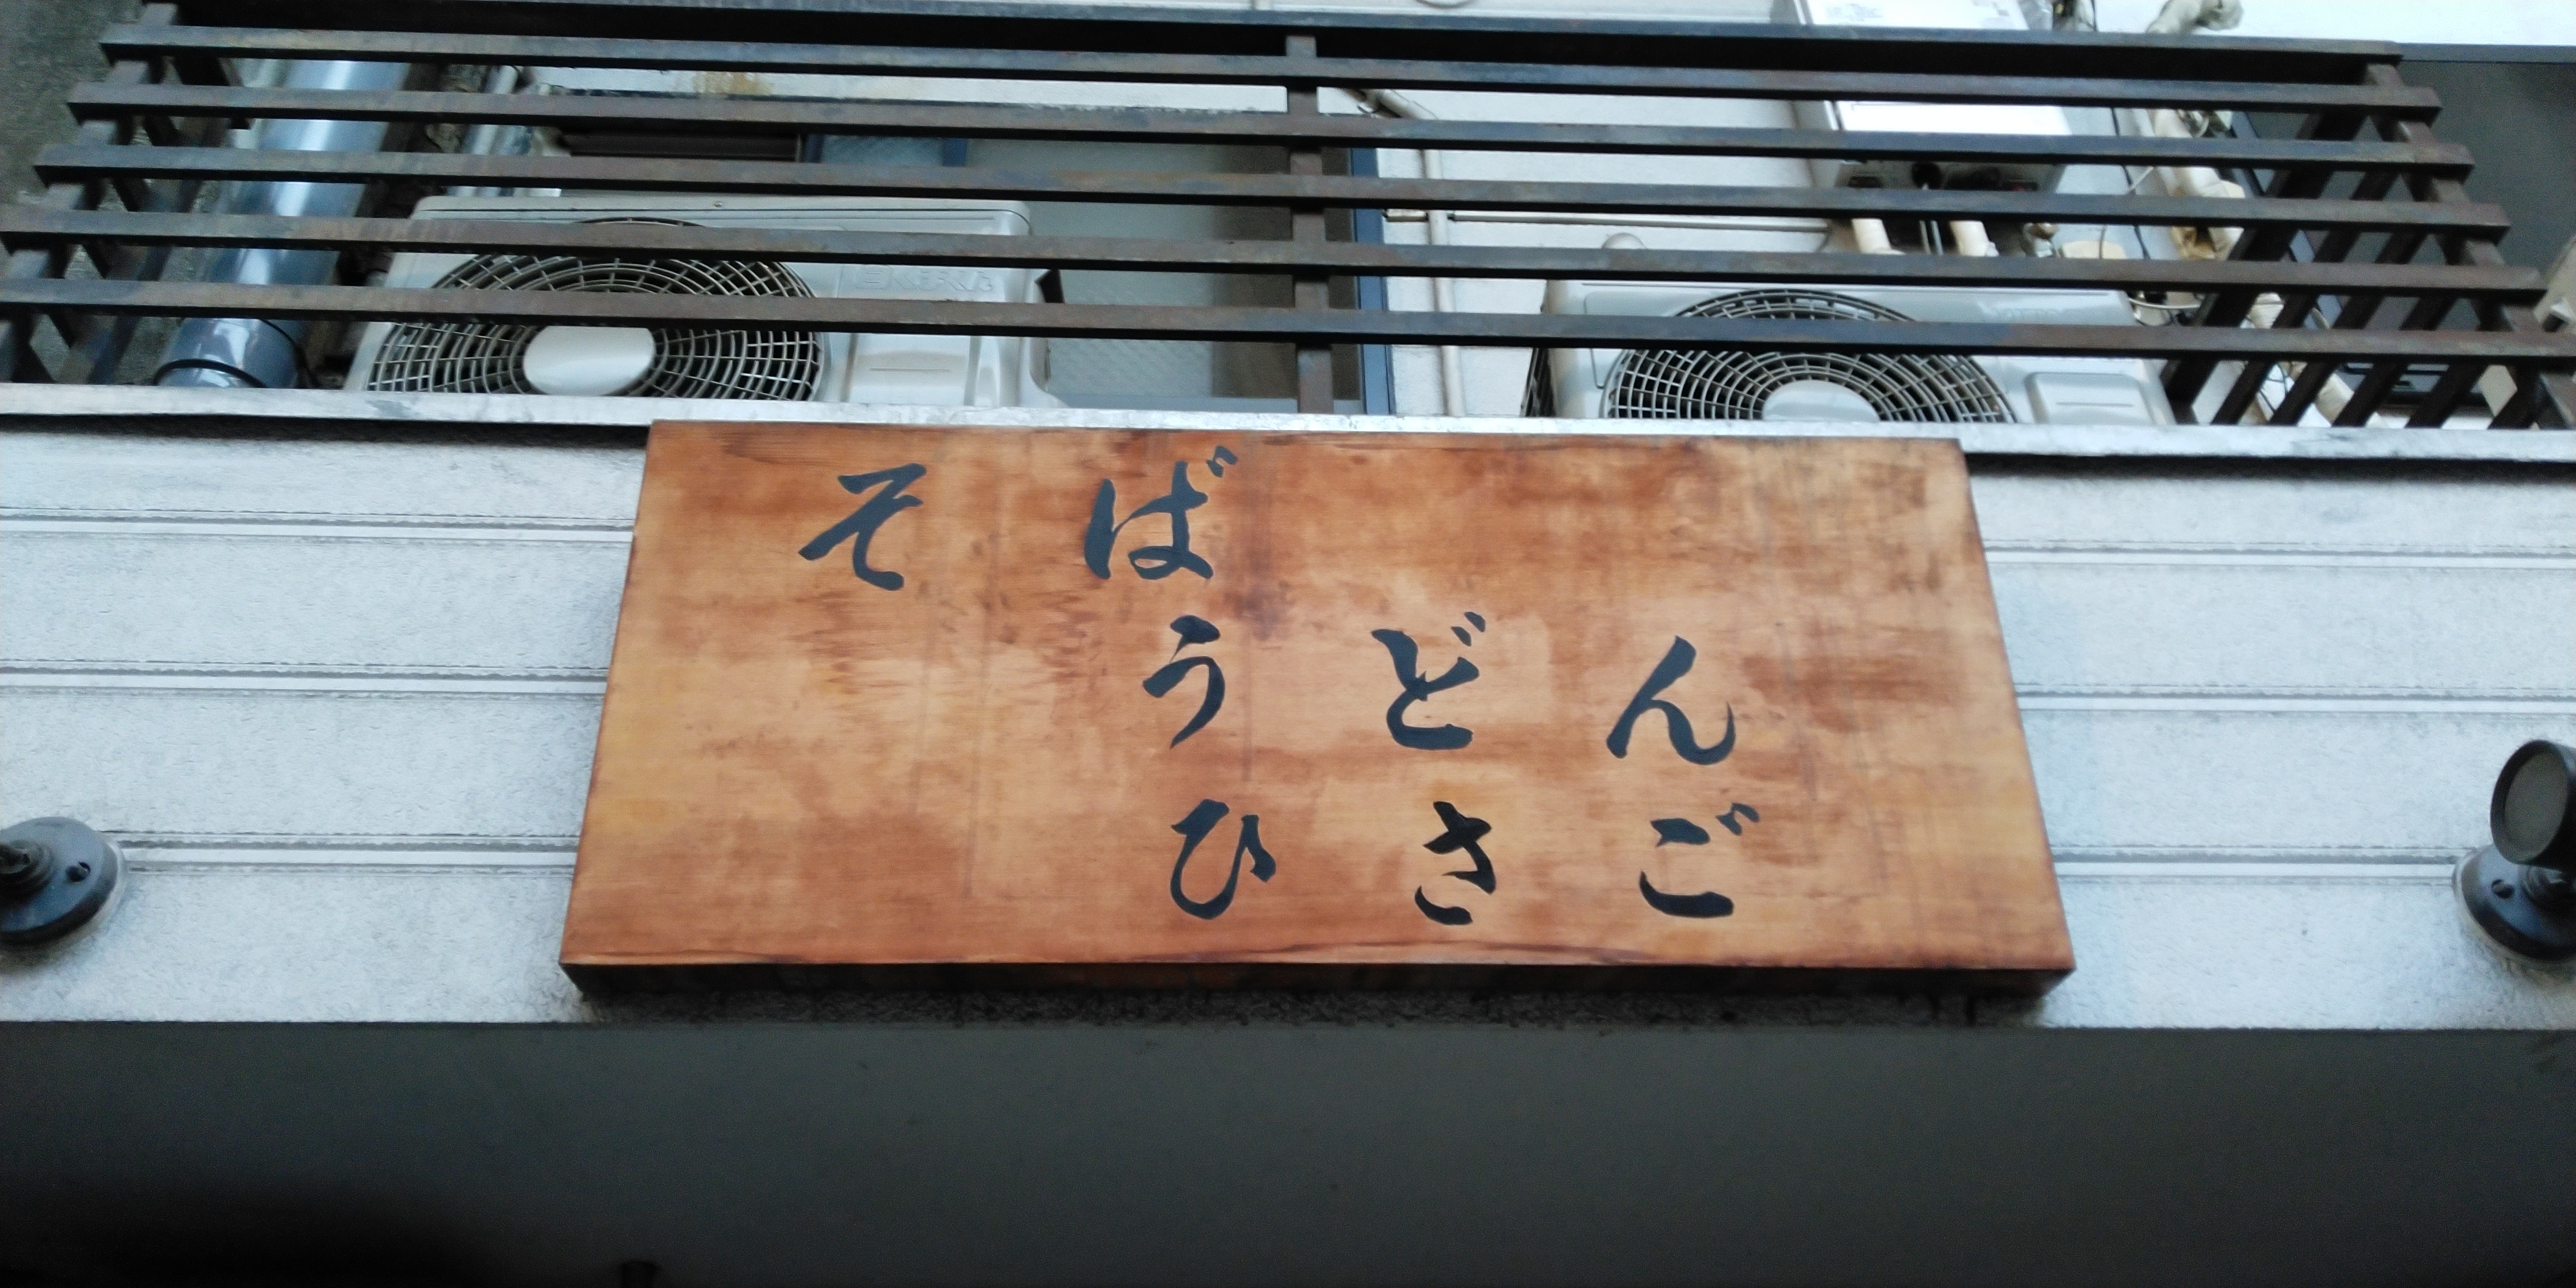 そば
うどん
ひさご